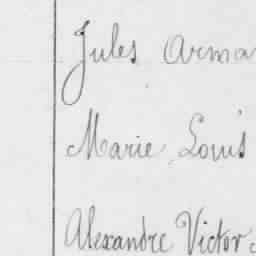 Jules Arma
Marie Louis
Alexandre Victor